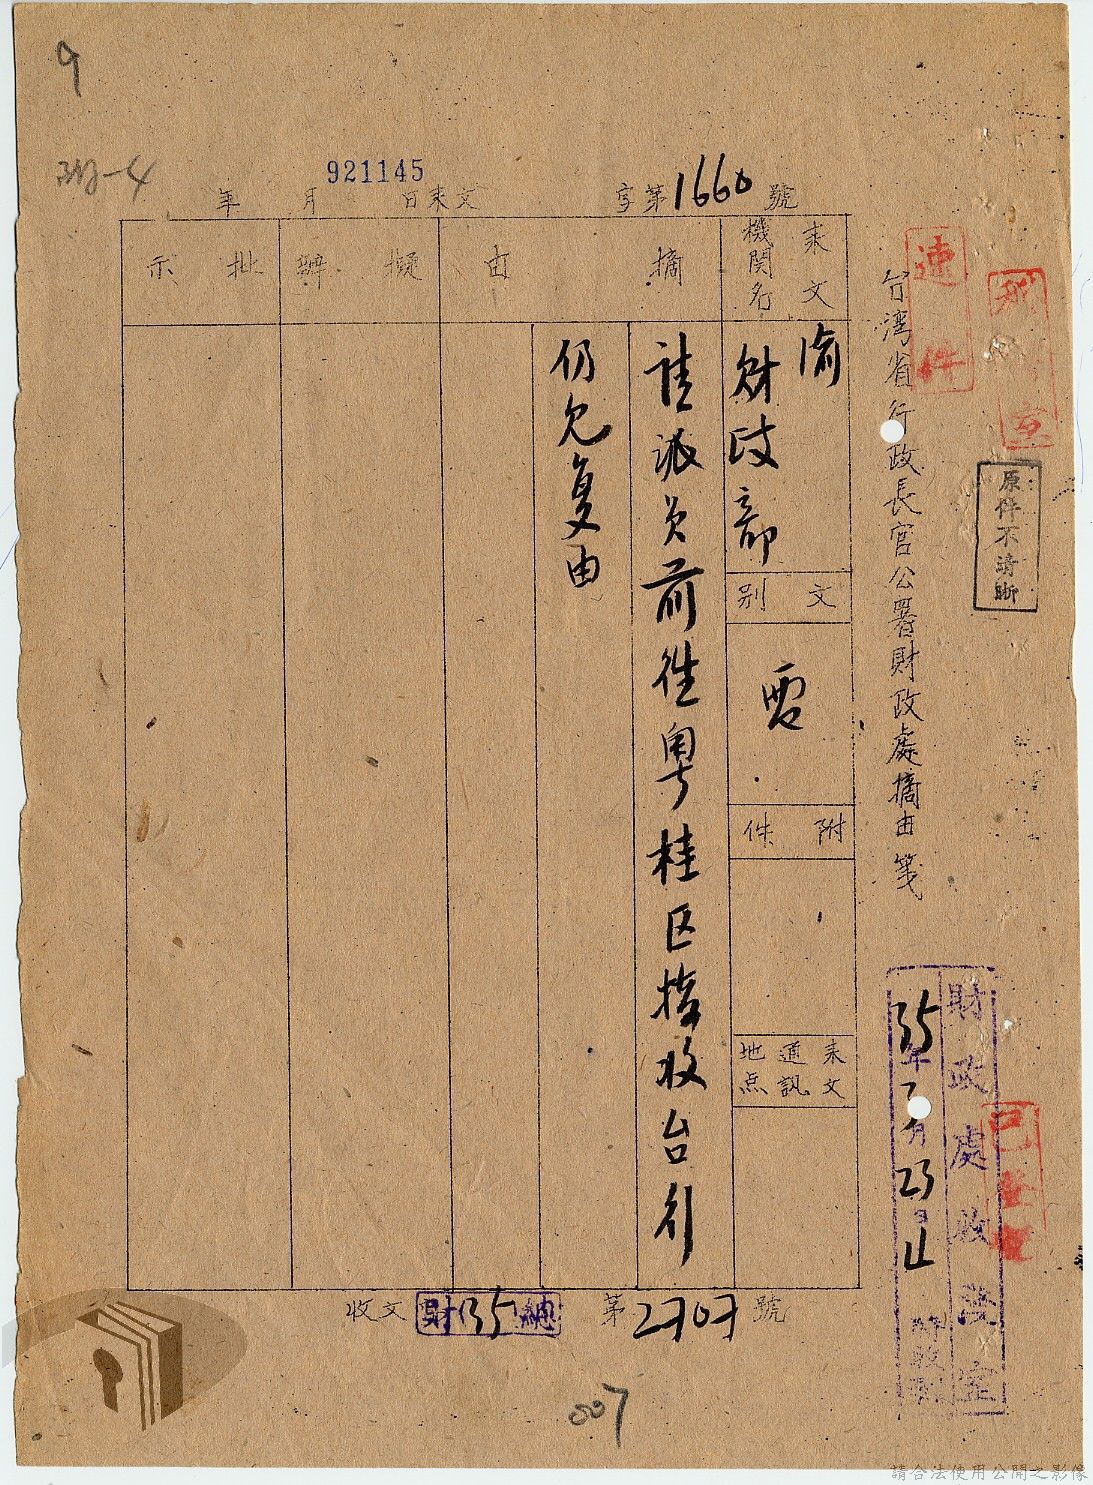 9
921145
年 月 日来文 字第1660號
台灣省行政長官公署財政處摘由箋
速件
原件不清晰
来文機関名
摘由
擬辦
批示
渝財政部
文別
電
附件
来文通訊地点
請派員前往粤桂区接收台行
仍見复由
財政處收發室
35年 月23日
收文 財35總 第2707號
007
請合法使用公開之影像